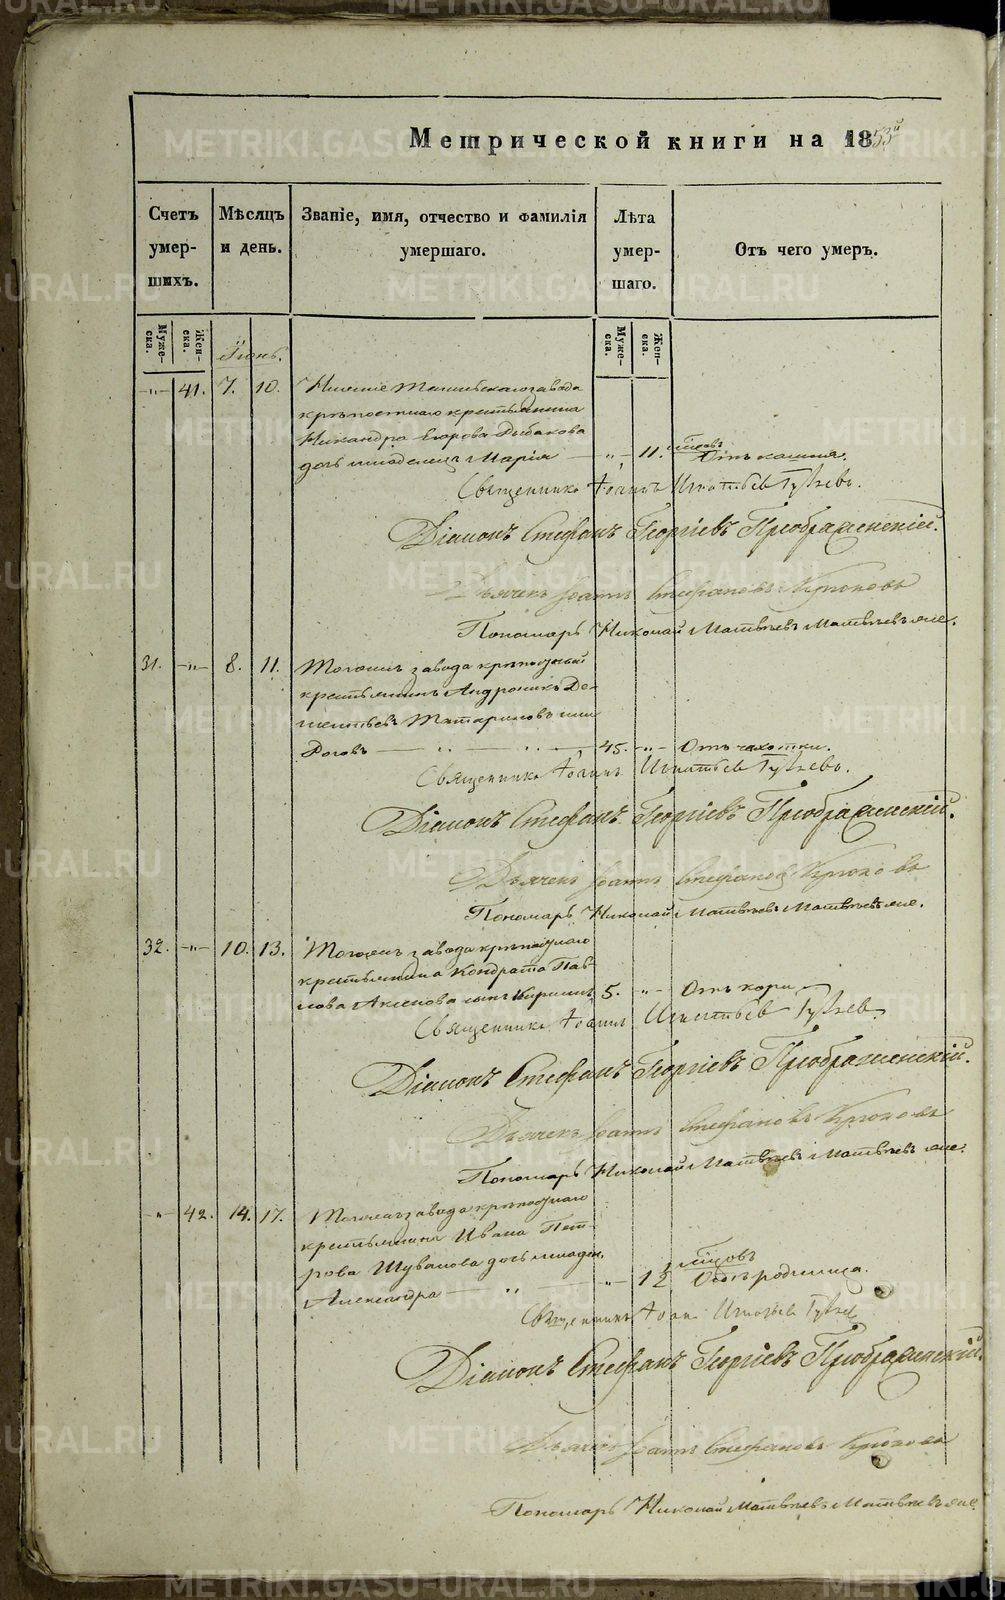 Метрической книги на 1853й
Счетъ умершихъ.
Мѣсяцъ и день.
Званіе, имя, отчество и фамилія умершаго.
Лѣта умершаго.
Отъ чего умеръ.
Мужеска.
Женска.
Мужеска.
Женска.
Іюнь.
-"- 41. 7. 10. Нижне Тагильскаго завода
крѣпостнаго крестьянина
Никандра Егорова Рыбакова
дочь младенецъ Марія -"- 11. мѣсяцовъ Отъ кашля.
Священникъ Іоаннъ Игнатьевъ
Діаконъ Стефанъ Георгіевъ Преображенскій.
Дьячекъ Іоаннъ Стефановъ Крюковъ
Пономарь Николай Матвѣевъ Матвѣевъ же.
31. -"- 8. 11. Тогожъ завода крѣпостный
крестьянинъ Андроникъ Де-
ментьевъ Татариновъ или
Роговъ 45. -"- Отъ чахотки.
Священникъ Іоаннъ Игнатьевъ
Діаконъ Стефанъ Георгіевъ Преображенскій.
Дьячекъ Іоаннъ Стефановъ Крюковъ
Пономарь Николай Матвѣевъ Матвѣевъ же.
32. -"- 10. 13. Тогожъ завода крѣпостнаго
крестьянина Кондрата Пав-
лова Аксенова сынъ Кириллъ 5. -"- Отъ кори
Священникъ Іоаннъ Игнатьевъ
Діаконъ Стефанъ Георгіевъ Преображенскій.
Дьячекъ Іоаннъ Стефановъ Крюковъ
Пономарь Николай Матвѣевъ Матвѣевъ же.
-"- 42. 14. 17. Тогожъ завода крѣпостнаго
крестьянина Ивана Пет-
рова Шувалова дочь младен.
Александра -"- 12 мѣсяцовъ Отъ родимца.
Священникъ Іоаннъ Игнатьевъ
Діаконъ Стефанъ Георгіевъ Преображенскій.
Дьячекъ Іоаннъ Стефановъ Крюковъ
Пономарь Николай Матвѣевъ Матвѣевъ же.
METRIKI.GASO-URAL.RU